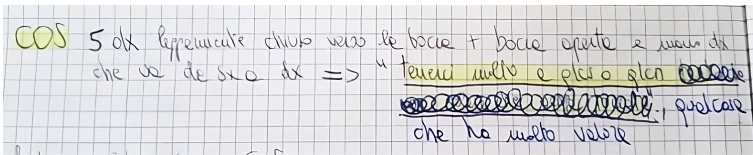 COS 5 dx leggermente chiuso verso le bocca + bocca aperta e mano dx
che va da sx a dx => " tenerci molto e
qualcosa
che ha molto valore